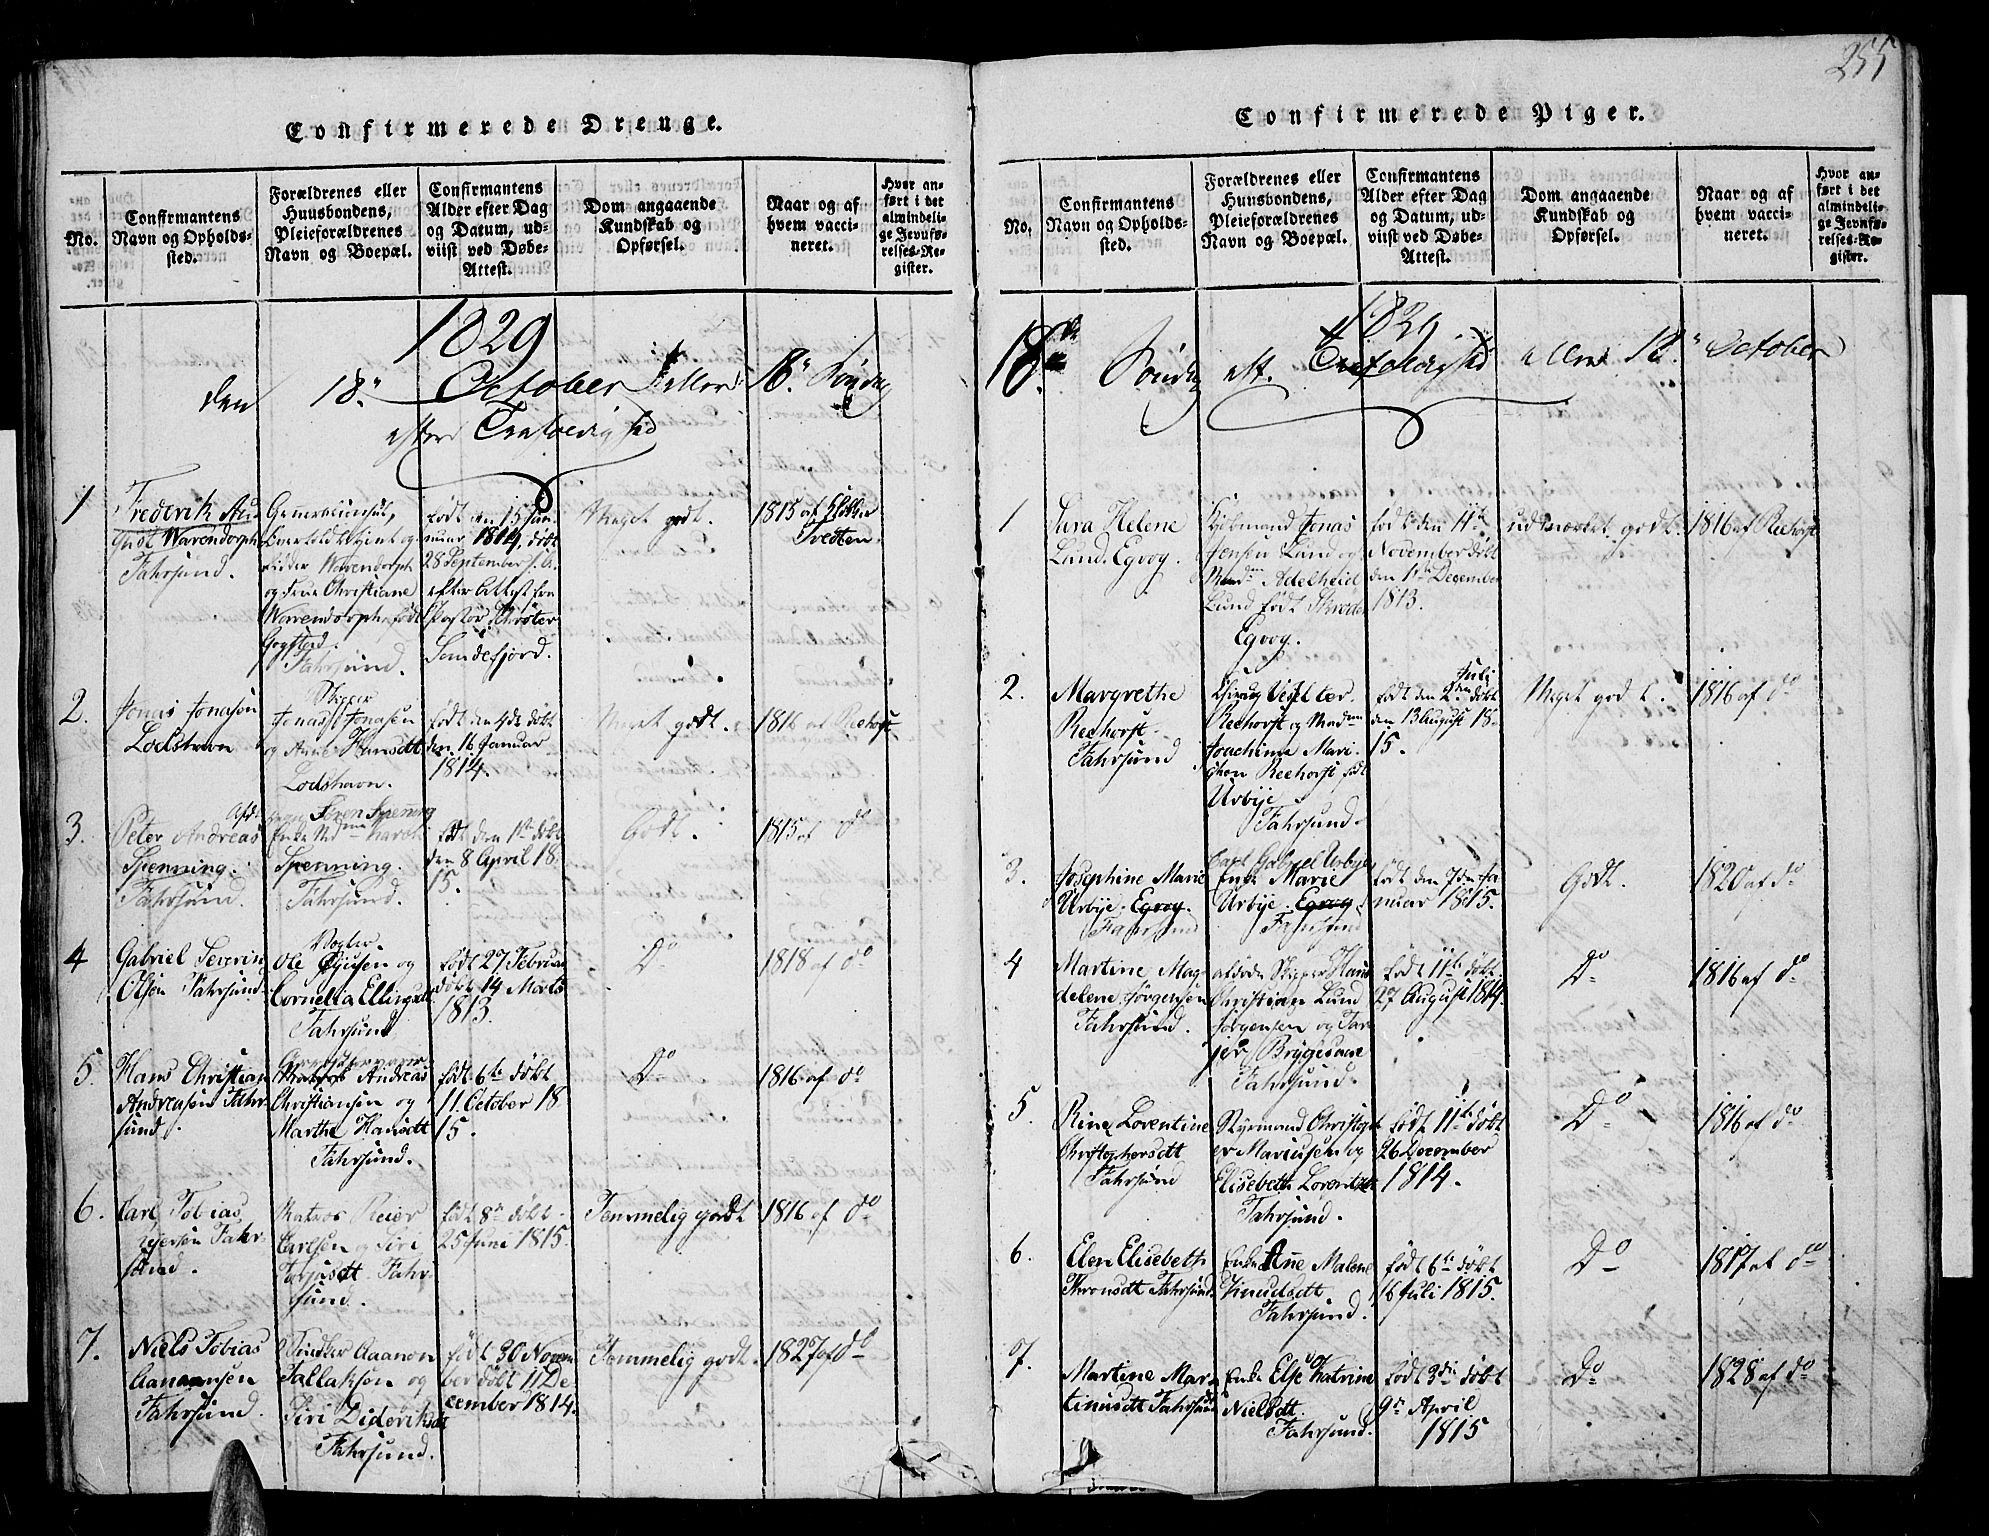 255
Confirmerede Drenge.
No.
Confirmantens
Navn og Opholds-
sted.
Forældrenes eller
Huusbondens,
Pleieforældrenes
Navn og Boepæl.
Confirmantens
Alder efter Dag
og Datum, ud-
viist ved Døbe-
Attest.
Dom angaaende
Kundskab og
Opførsel.
Naar og af
hvem vacci-
neret.
Hvor an-
ført i det
almindeli-
ge Jevnfø-
relses-Re-
gister.
1829
den 18. October eller 18. Søndag
efter Trefoldighed
1
Frederik Au-
gust Warendorph
Fahrsund.
Generalconsul,
og
Ridder Warendorph
og Frue Christiane
Warendorph, født
Fahrsund.
født den 15 Jan-
nuar 1814, døbt
28 September s. A.
efter Attest fra
Pastor Schrøter
Sandefjord.
Meget godt.
1815 af
Tvetten.
2.
Jonas Jonasen
Lodshavn
Skipper
Jonas Jonasen
og Anne Hansdt
Lodshavn.
født den 4de døbt
den 16 Januar
1814.
Meget godt.
1816 af Reehorst
3.
Peter Andreas
Spenning.
Fahrsund.
Søren Spenning
Enke Madme
Spenning.
Fahrsund.
født den 1ste døbt
den 8 April 18
15.
Godt.
1815 af do
4
Gabriel Severin
Olsen Fahrsund.
Ole og
Cornelia Ellingsdt
Fahrsund
født 27 Februar
døbt 14 Marts
1813.
Do
1818 af do
5.
Hans Christian
Andreasen Fahr-
sund.
Andreas
Christiansen og
Marthe Hansdt
Fahrsund.
født 6te døbt
11. October 18
15.
Do
1816 af do
6.
Carl Tobias
Fahr-
sund.
Matros Reier
Carlsen og Siri
Torjusdt Fahr-
sund.
født 8de døbt
25 Juni 1815.
Temmelig godt
1816 af do
7.
Niels Tobias
Aanonsen
Fahrsund.
Aanon
Tallaksen og
Siri Didriksdt
Fahrsund.
født 30 Novem
ber døbt 11 De
cember 1814.
Temmelig godt.
1827 af do
Confirmerede Piger.
No.
Confirmantens
Navn og Opholds-
sted.
Forældrenes eller
Huusbondens,
Pleieforældrenes
Navn og Boepæl.
Confirmantens
Alder efter Dag
og Datum, ud-
viist ved Døbe-
Attest.
Dom angaaende
Kundskab og
Opførsel.
Naar og af
hvem vacci-
neret.
Hvor an-
ført i det
almindeli-
ge Jevnfø-
relses-Re-
gister.
1829
18de Søndag eft. Trefoldighed eller 18. October
1
Sara Helene
Lund. Egvog.
Kjøbmand Jonas
Jensen Lund og
Madme Adelheid
Lund født
Egvog.
født den 11te
November døbt
den 1ste December
1813.
udmærket godt.
1816 af Reehorst
2.
Margrethe
Reehorst
Fahrsund
Reehorst og Madme
Joachime Mari-
chen Reehorst født
Urbye
Fahrsund.
Juli
født den 2den døbt
den 13 August 18
15.
Meget godt.
1816 af do
3.
Josephine Marie
Urbye. Egvog.
Fahrsund
Carl Gabriel Urbyes
Enke Marie
Urbye. Egvog.
Fahrsund
født den 7de Ja
nuar 1815.
Godt.
1820 af do
4
Martine Mag-
delene Jørgensen
Fahrsund.
afdøde Skipper Hans
Christian Lund
Jørgensen og Tar
jer Bryggesaae
Fahrsund.
født 11te døbt
27 August 1814.
Do
1816 af do
5.
Rine Lorentine
Christophersdt
Fahrsund
Styrmand Christoph
er Mariusen og
Elisebeth Lorentzdt
Fahrsund.
født 11te døbt
26 December
1814.
Do
1816 af do
6.
Elen Elisebeth
Thronsdt Fahrsund.
Enke Ane Malene
Knudsdt
Fahrsund.
født 6te døbt
16 Juli 1815.
Do
1817 af do
7.
Martine Mar-
tinusdt Fahrsund
Enke Else Katrine
Nielsdt.
Fahrsund.
født 3die døbt
9de April
1815
Do
1828 af do